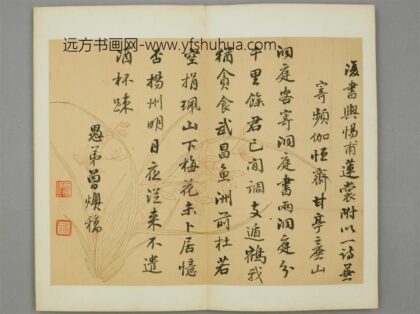 远方书画网-www.yfshuhua.com
復書與惕甫蓮裳附以一詩並
寄頻伽恒齋甘亭壷山
洞庭客寄洞庭書兩洞庭分
千里餘君已閒調支遁鶴我
猶貪食武昌魚洲前杜若
空捐珮山下梅花未卜居憶
否揚州明月夜從来不遣
酒杯踈
愚弟曾燠稿